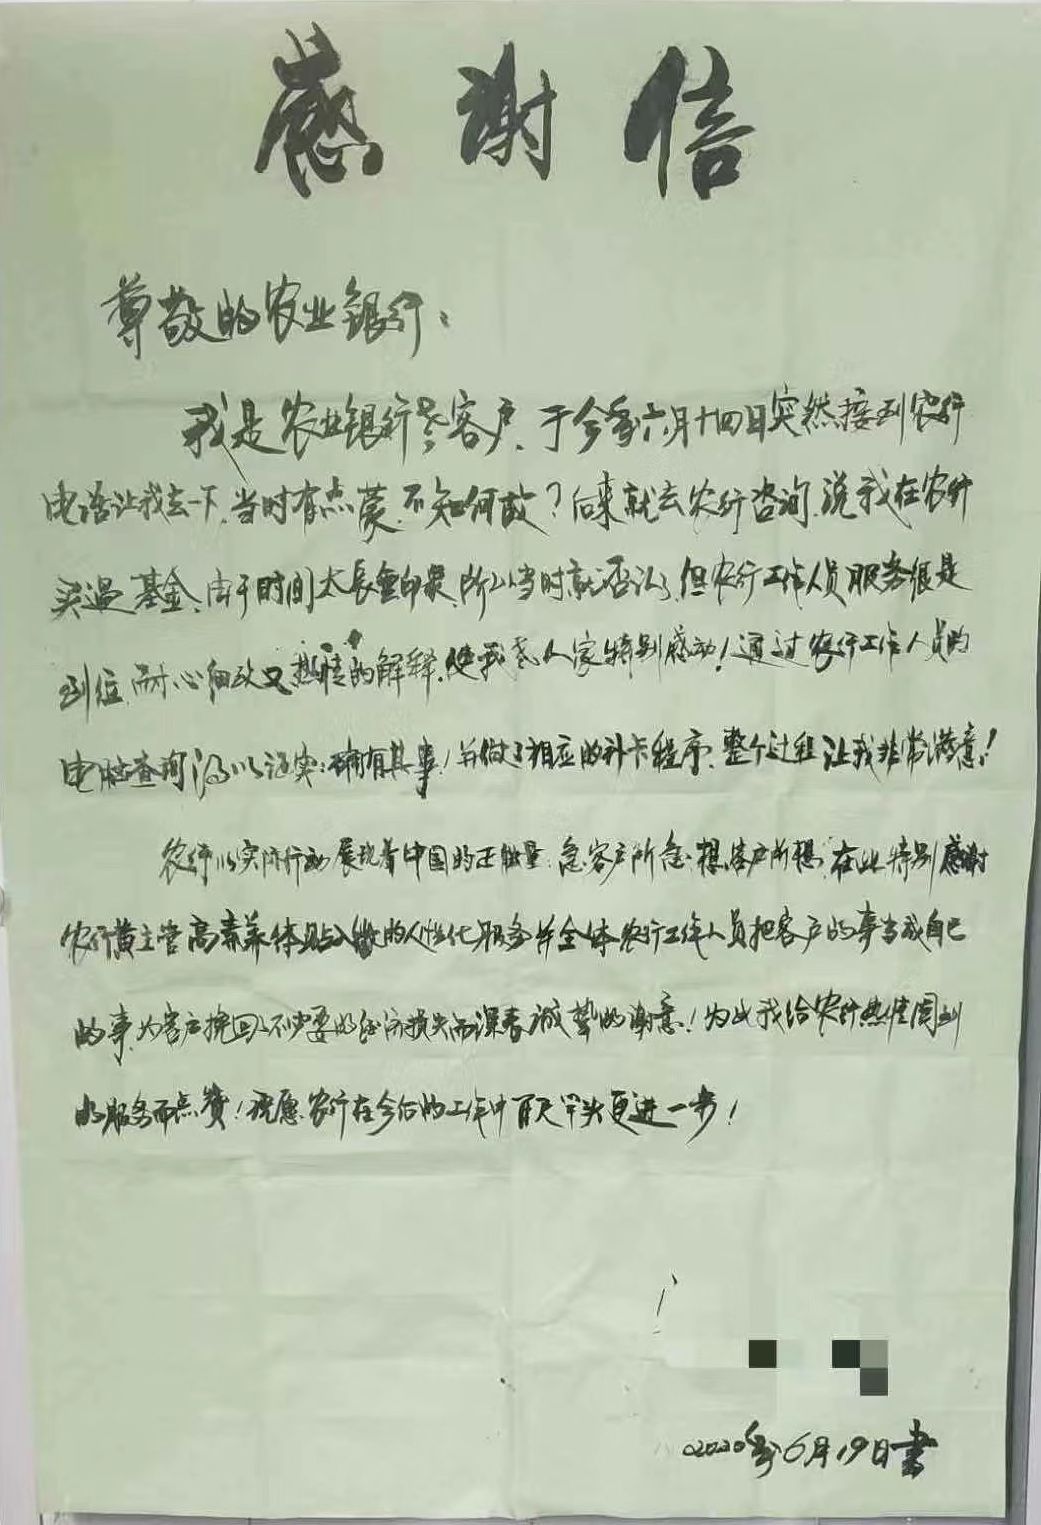 感谢信
尊敬的农业银行：
我是农业银行老客户、于今年六月十四日突然接到农行
电话让我去一下，当时有点蒙，不知何故？后来就去农行咨询，说我在农行
买过基金、由于时间太长无印象，所以当时就否认了，但农行工作人员服务很是
到位，耐心细致又热情的解释，使我老人家特别感动！通过农行工作人员的
电脑查询得以证实：确有其事！并做了相应的补卡程序、整个过程让我非常满意！
农行以实际行动展现着中国的正能量，急客户所急，想客户所想，在此特别感谢
农行黄主管高素养体贴入微的人性化服务并全体农行工作人员把客户的事当成自己
的事，为客户挽回不必要的经济损失而深表诚挚的谢意！为此我给农行热情周到
的服务而点赞！祝愿农行在今后的工作中百尺竿头更进一步！
2020年6月19日书